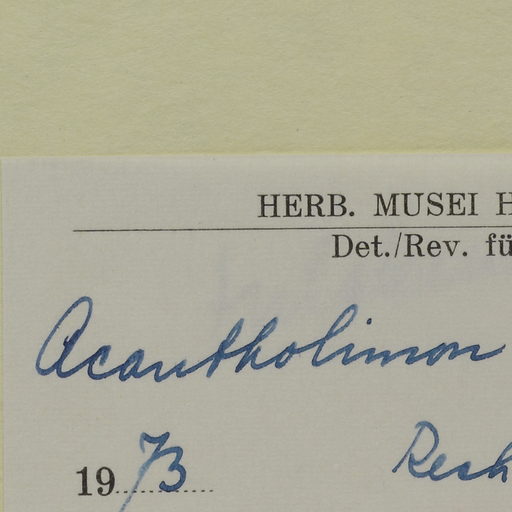 HERB. MUSEI H
Det./Rev. fü
Acantholimon
1973 Rech